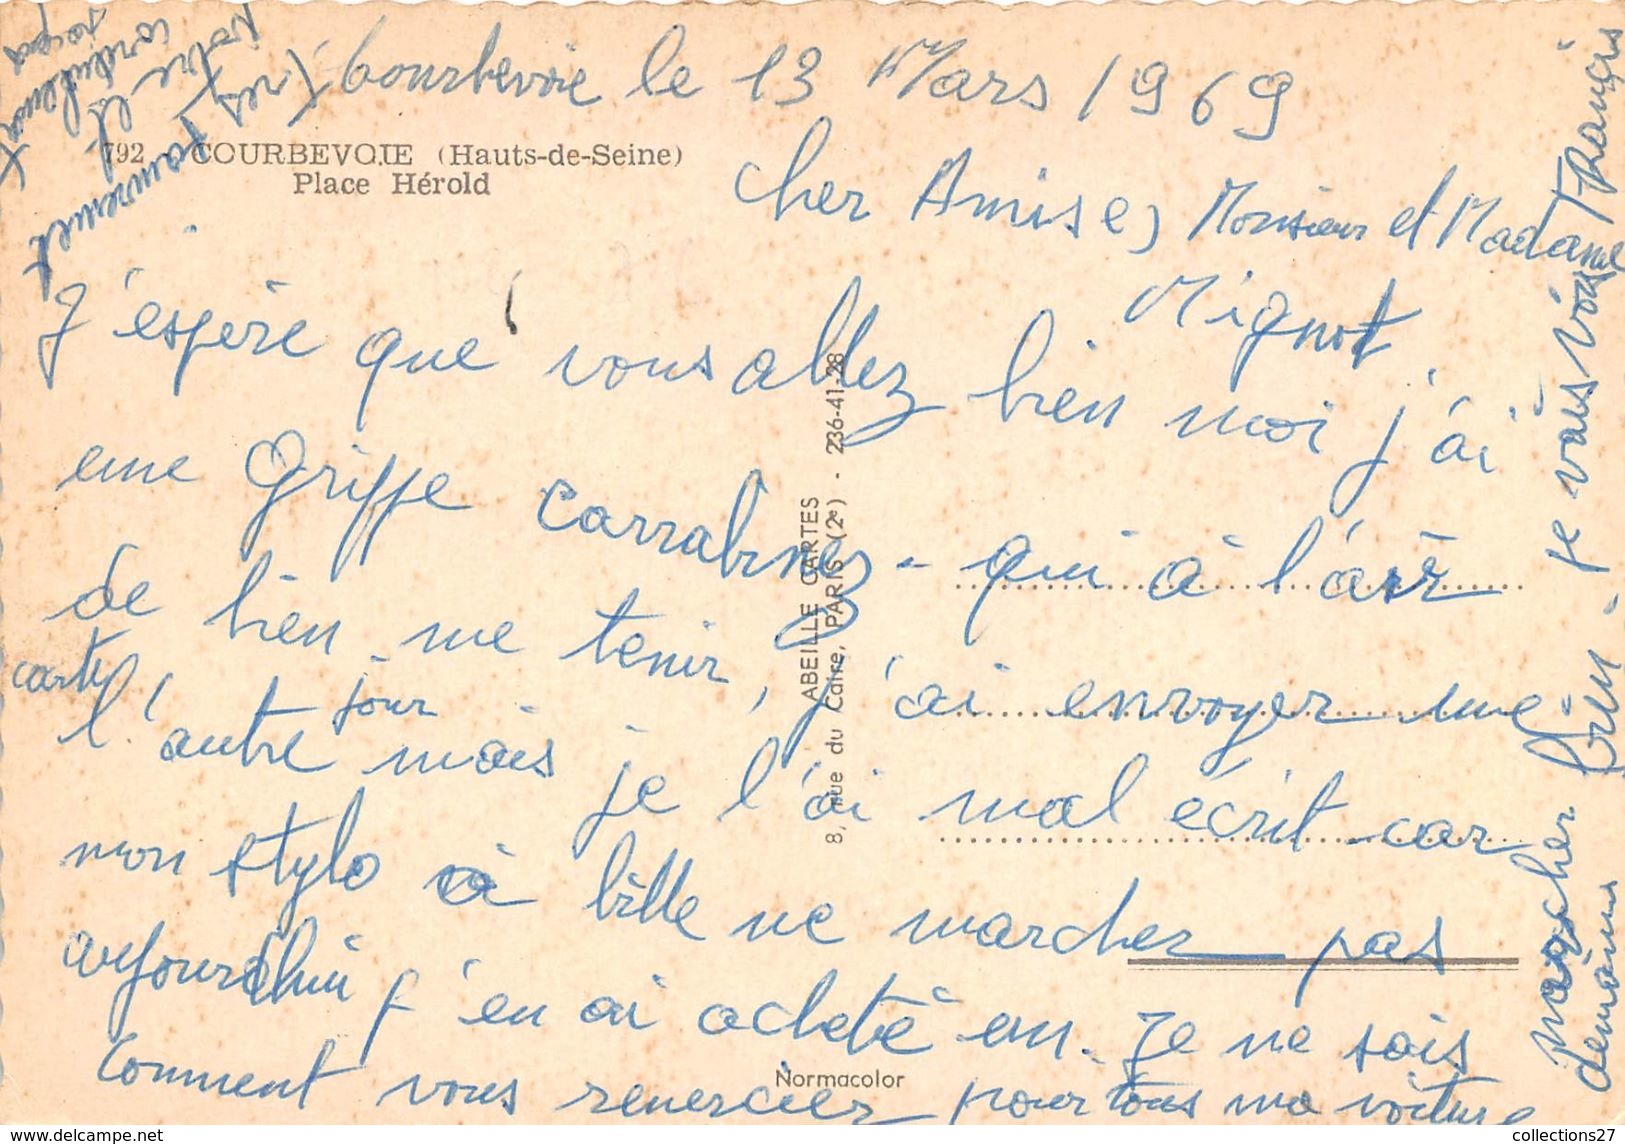 Courbevoie le 13 Mars 1969
792 COURBEVOIE (Hauts-de-Seine)
Place Hérold
cher Amise, Monsieur et Madame
Mignot
J'espère que vous allez bien moi j'ai
une Griffe Carrabinez - qui à l'air
de bien me tenir, j'ai envoyer une
carte,
l'autre jour mais je l'ai mal écrit car
mon stylo à bille ne marchez pas
aujourdhui j'en ai acheté un. Je ne sais
comment vous renercier pour tous ma voiture
marcher bien - je vais vous
demains
François
votre
cordialement
très
ABEILLE CARTES
8, rue du Caire, PARIS (2e) - 236-41-28
Normacolor
collections27